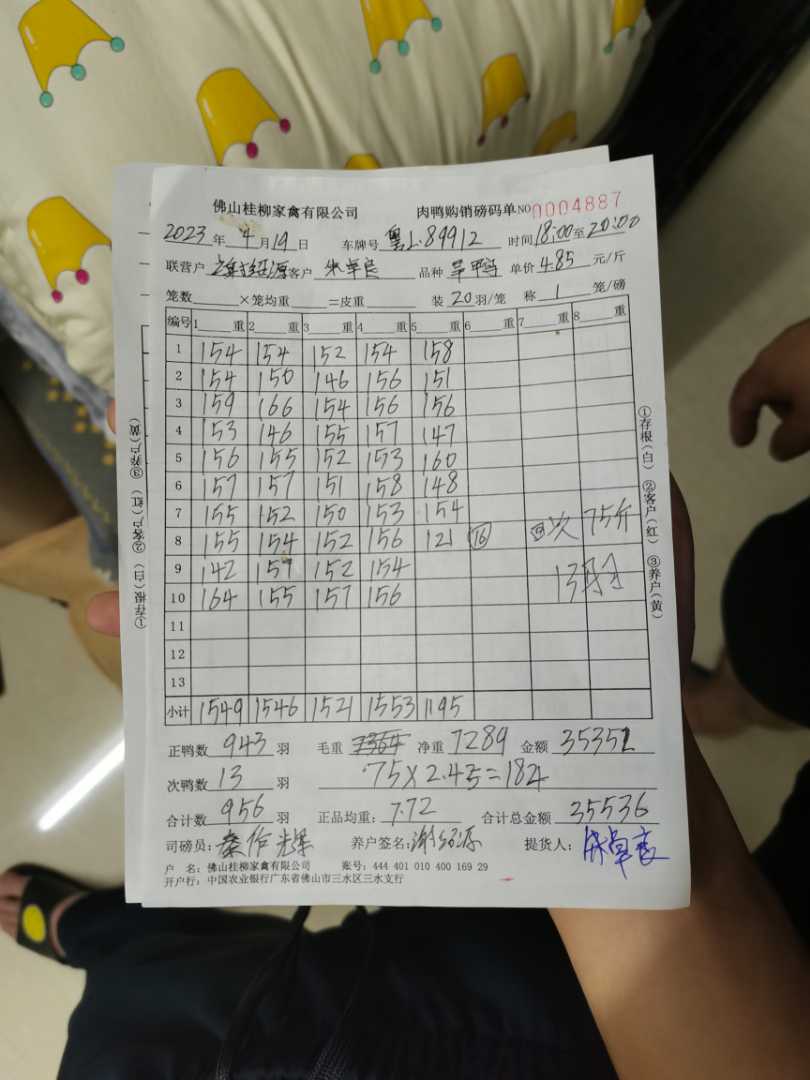 佛山桂柳家禽有限公司 肉鸭购销磅码单 NO 0004887
2023年4月19日 车牌号 粤L·89912 时间18:00至20:00
联营户 客户 品种 旱鸭 单价4.85元/斤
笼数 ×笼均重 =皮重 装20羽/笼 称 1 笼/磅
编号 1 重 2 重 3 重 4 重 5 重 6 重 7 重 8 重
1 154 154 152 154 158
2 154 150 146 156 151
3 159 166 154 156 156
4 153 146 155 157 147
5 156 155 152 153 160
6 157 157 151 158 148
7 155 152 150 153 154
8 155 154 152 156 121 16 次 75斤
9 142 157 152 154 13只
10 164 155 157 156
11
12
13
小计 1549 1546 1521 1553 1195
正鸭数 943 羽 毛重 7364 净重 7289 金额 35351
次鸭数 13 羽 75×2.45=184
合计数 956 羽 正品均重: 7.72 合计总金额 35536
司磅员: 秦作辉 养户签名: 谢绍源 提货人:
户 名: 佛山桂柳家禽有限公司 账号: 444 401 010 400 169 29
开户行: 中国农业银行广东省佛山市三水区三水支行
①存根(白) ②客户(红) ③养户(黄)
①存根(白) ②客户(红) ③养户(黄)